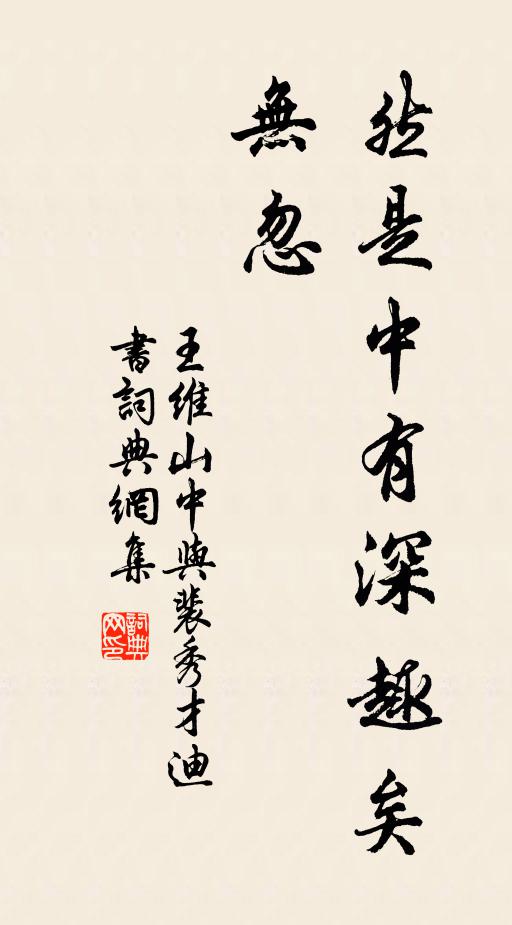 然是中有深趣矣
無忽
王維山中與裴秀才迪
書詞典網集
詞典
网印